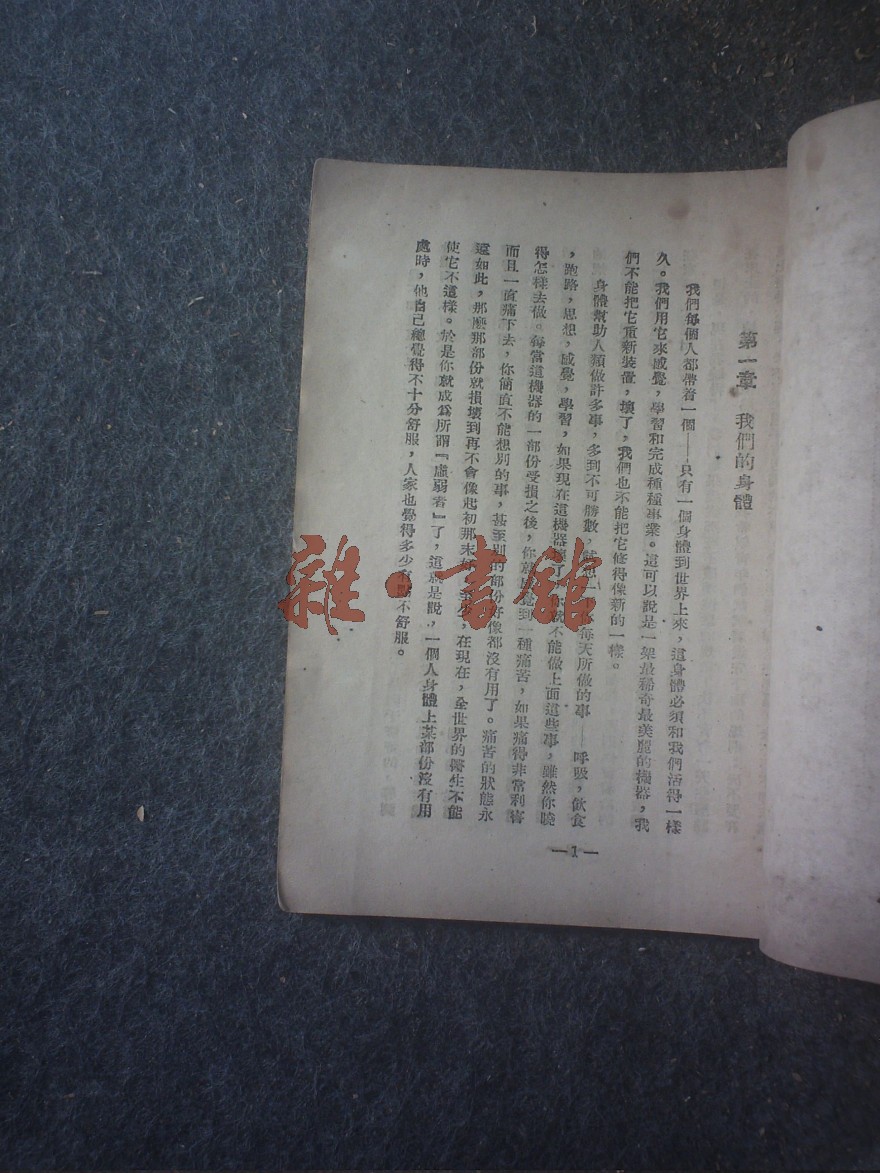 第一章 我們的身體
我們每個人都帶着一個——只有一個身體到世界上來，這身體必須和我們活得一樣
久。我們用它來感覺，學習和完成種種事業。這可以說是一架最稀奇最美麗的機器，我
們不能把它重新裝置，壞了，我們也不能把它修得像新的一樣。
身體幫助人類做許多事，多到不可勝數，就想一 每天所做的事——呼吸，飲食
，跑路，思想，感覺，學習，如果現在這機器壞了，你就不能做上面這些事，雖然你曉
得怎樣去做。每當這機器的一部份受損之後，你就感覺到一種痛苦，如果痛得非常利害
而且一直痛下去，你簡直不能想別的事，甚至別的部份好像都沒有用了。痛苦的狀態永
遠如此，那麼那部份就損壞到再不會像起初那末 在現在，全世界的醫生不能
使它不這樣。於是你就成爲所謂『虛弱者』了，這就是說，一個人身體上某部份沒有用
處時，他自己總覺得不十分舒服，人家也覺得多少有點不舒服。
—1—
雜·書館